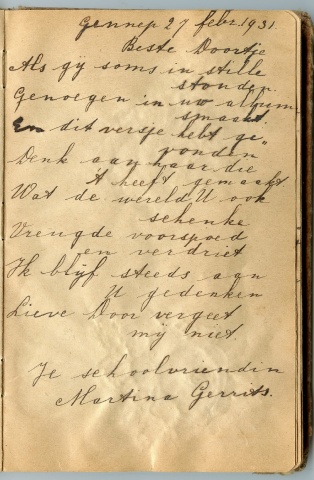 Gennep 27 febr. 1931.
Beste Doortje
Als gÿ soms in stille
stonden.
Genoegen in uw album
smaakt.
En dit versje hebt ge„
vonden
Denk aan haar die
't heeft gemaakt
Wat de wereld U ook
schenke
Vreugde voorspoed
en verdriet
Ik blÿf steeds aan
U gedenken
Lieve Door vergeet
mÿ niet.
Je schoolvriendin
Martina Gerrits.